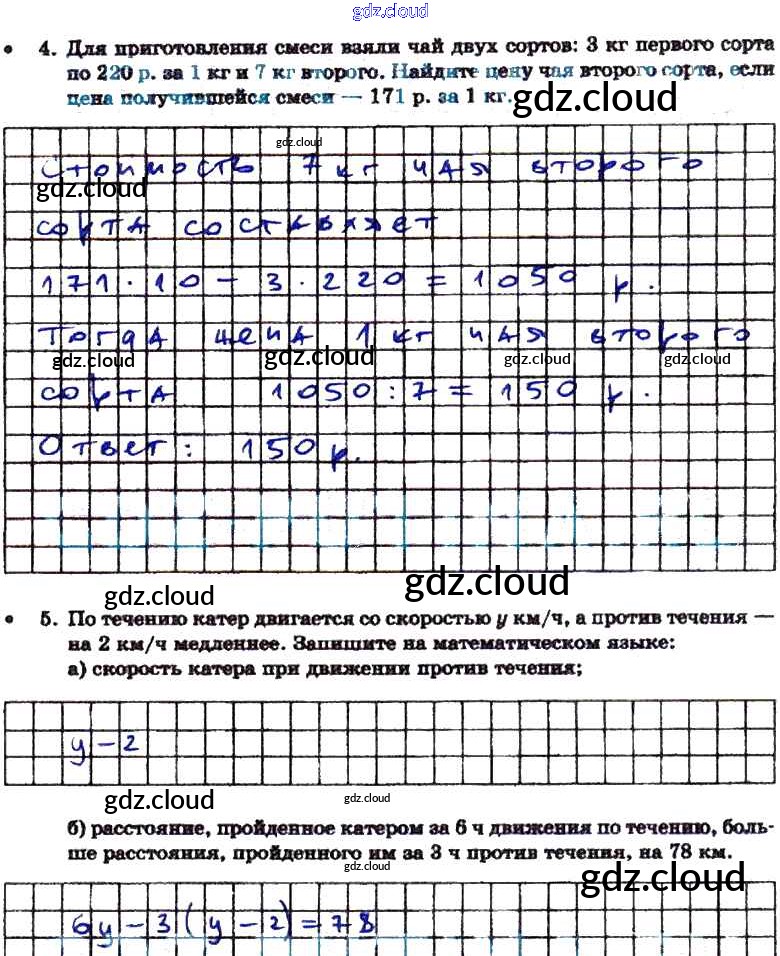 gdz.cloud
• 4. Для приготовления смеси взяли чай двух сортов: 3 кг первого сорта
по 220 р. за 1 кг и 7 кг второго. Найдите цену чая второго сорта, если
цена получившейся смеси — 171 р. за 1 кг.
gdz.cloud
gdz.cloud
Стоимость 7 кг чая второго
gdz.cloud
сорта составляет
171 · 10 − 3 · 220 = 1050 р.
Тогда цена 1 кг чая второго
gdz.cloud gdz.cloud gdz.cloud gdz.cloud
сорта 1050 : 7 = 150 р.
Ответ: 150 р.
gdz.cloud gdz.cloud
• 5. По течению катер двигается со скоростью y км/ч, а против течения —
на 2 км/ч медленнее. Запишите на математическом языке:
а) скорость катера при движении против течения;
y − 2
gdz.cloud gdz.cloud
б) расстояние, пройденное катером за 6 ч движения по течению, боль-
ше расстояния, пройденного им за 3 ч против течения, на 78 км.
gdz.cloud gdz.cloud
6y − 3 (y − 2) = 78